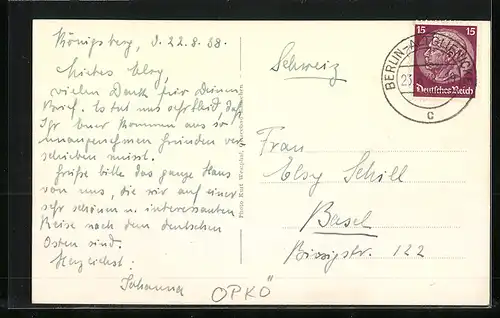 Königsberg, d. 22.8.38.
Liebes Elsy,
vielen Dank für Deinen
Brief. Es tut uns sehr leid, daß
Ihr Euer Kommen aus so
unangenehmen Gründen ver-
schieben müsst.
Grüße bitte das ganze Haus
von uns, die wir auf einer
sehr schönen u. interessanten
Reise nach dem deutschen
Osten sind.
Herzlichst:
Johanna
OPKÖ
Photo Kurt
Schweiz
BERLIN-
23
c
15 15
Deutsches Reich
Frau
Elsy Schill
Basel
Birsigstr. 122